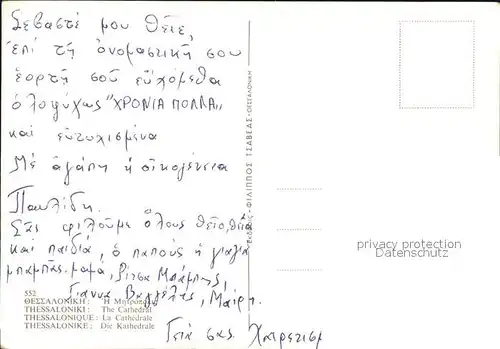 Σεβαστέ μου Θεῖε,
ἐπί τῇ ὀνομαστικῇ σου
ἑορτῇ σοῦ εὐχόμεθα
ὁλοψύχως "ΧΡΟΝΙΑ ΠΟΛΛΑ"
καί εὐτυχισμένα
Μέ ἀγάπη ἡ οἰκογένεια
Παυλίδη.
Σᾶς φιλοῦμε ὅλους θεῖο, θεία
καί παιδιά, ὁ παπούς ἡ γιαγιά
μπαμπάς. μαμά, Ρίτσα
Γιάννα Βαγγέλης, Μαίρη.
Γειά σας.
552
ΘΕΣΣΑΛΟΝΙΚΗ: Ἡ Μητρόπολις
THESSALONIKI: The Cathedral
THESSALONIQUE: La Cathédrale
THESSALONIKE: Die Kathedrale
ΕΚΔΟΣΙΣ: ΦΙΛΙΠΠΟΣ ΤΣΑΒΕΑΣ - ΘΕΣΣΑΛΟΝΙΚΗ
privacy protection
Datenschutz